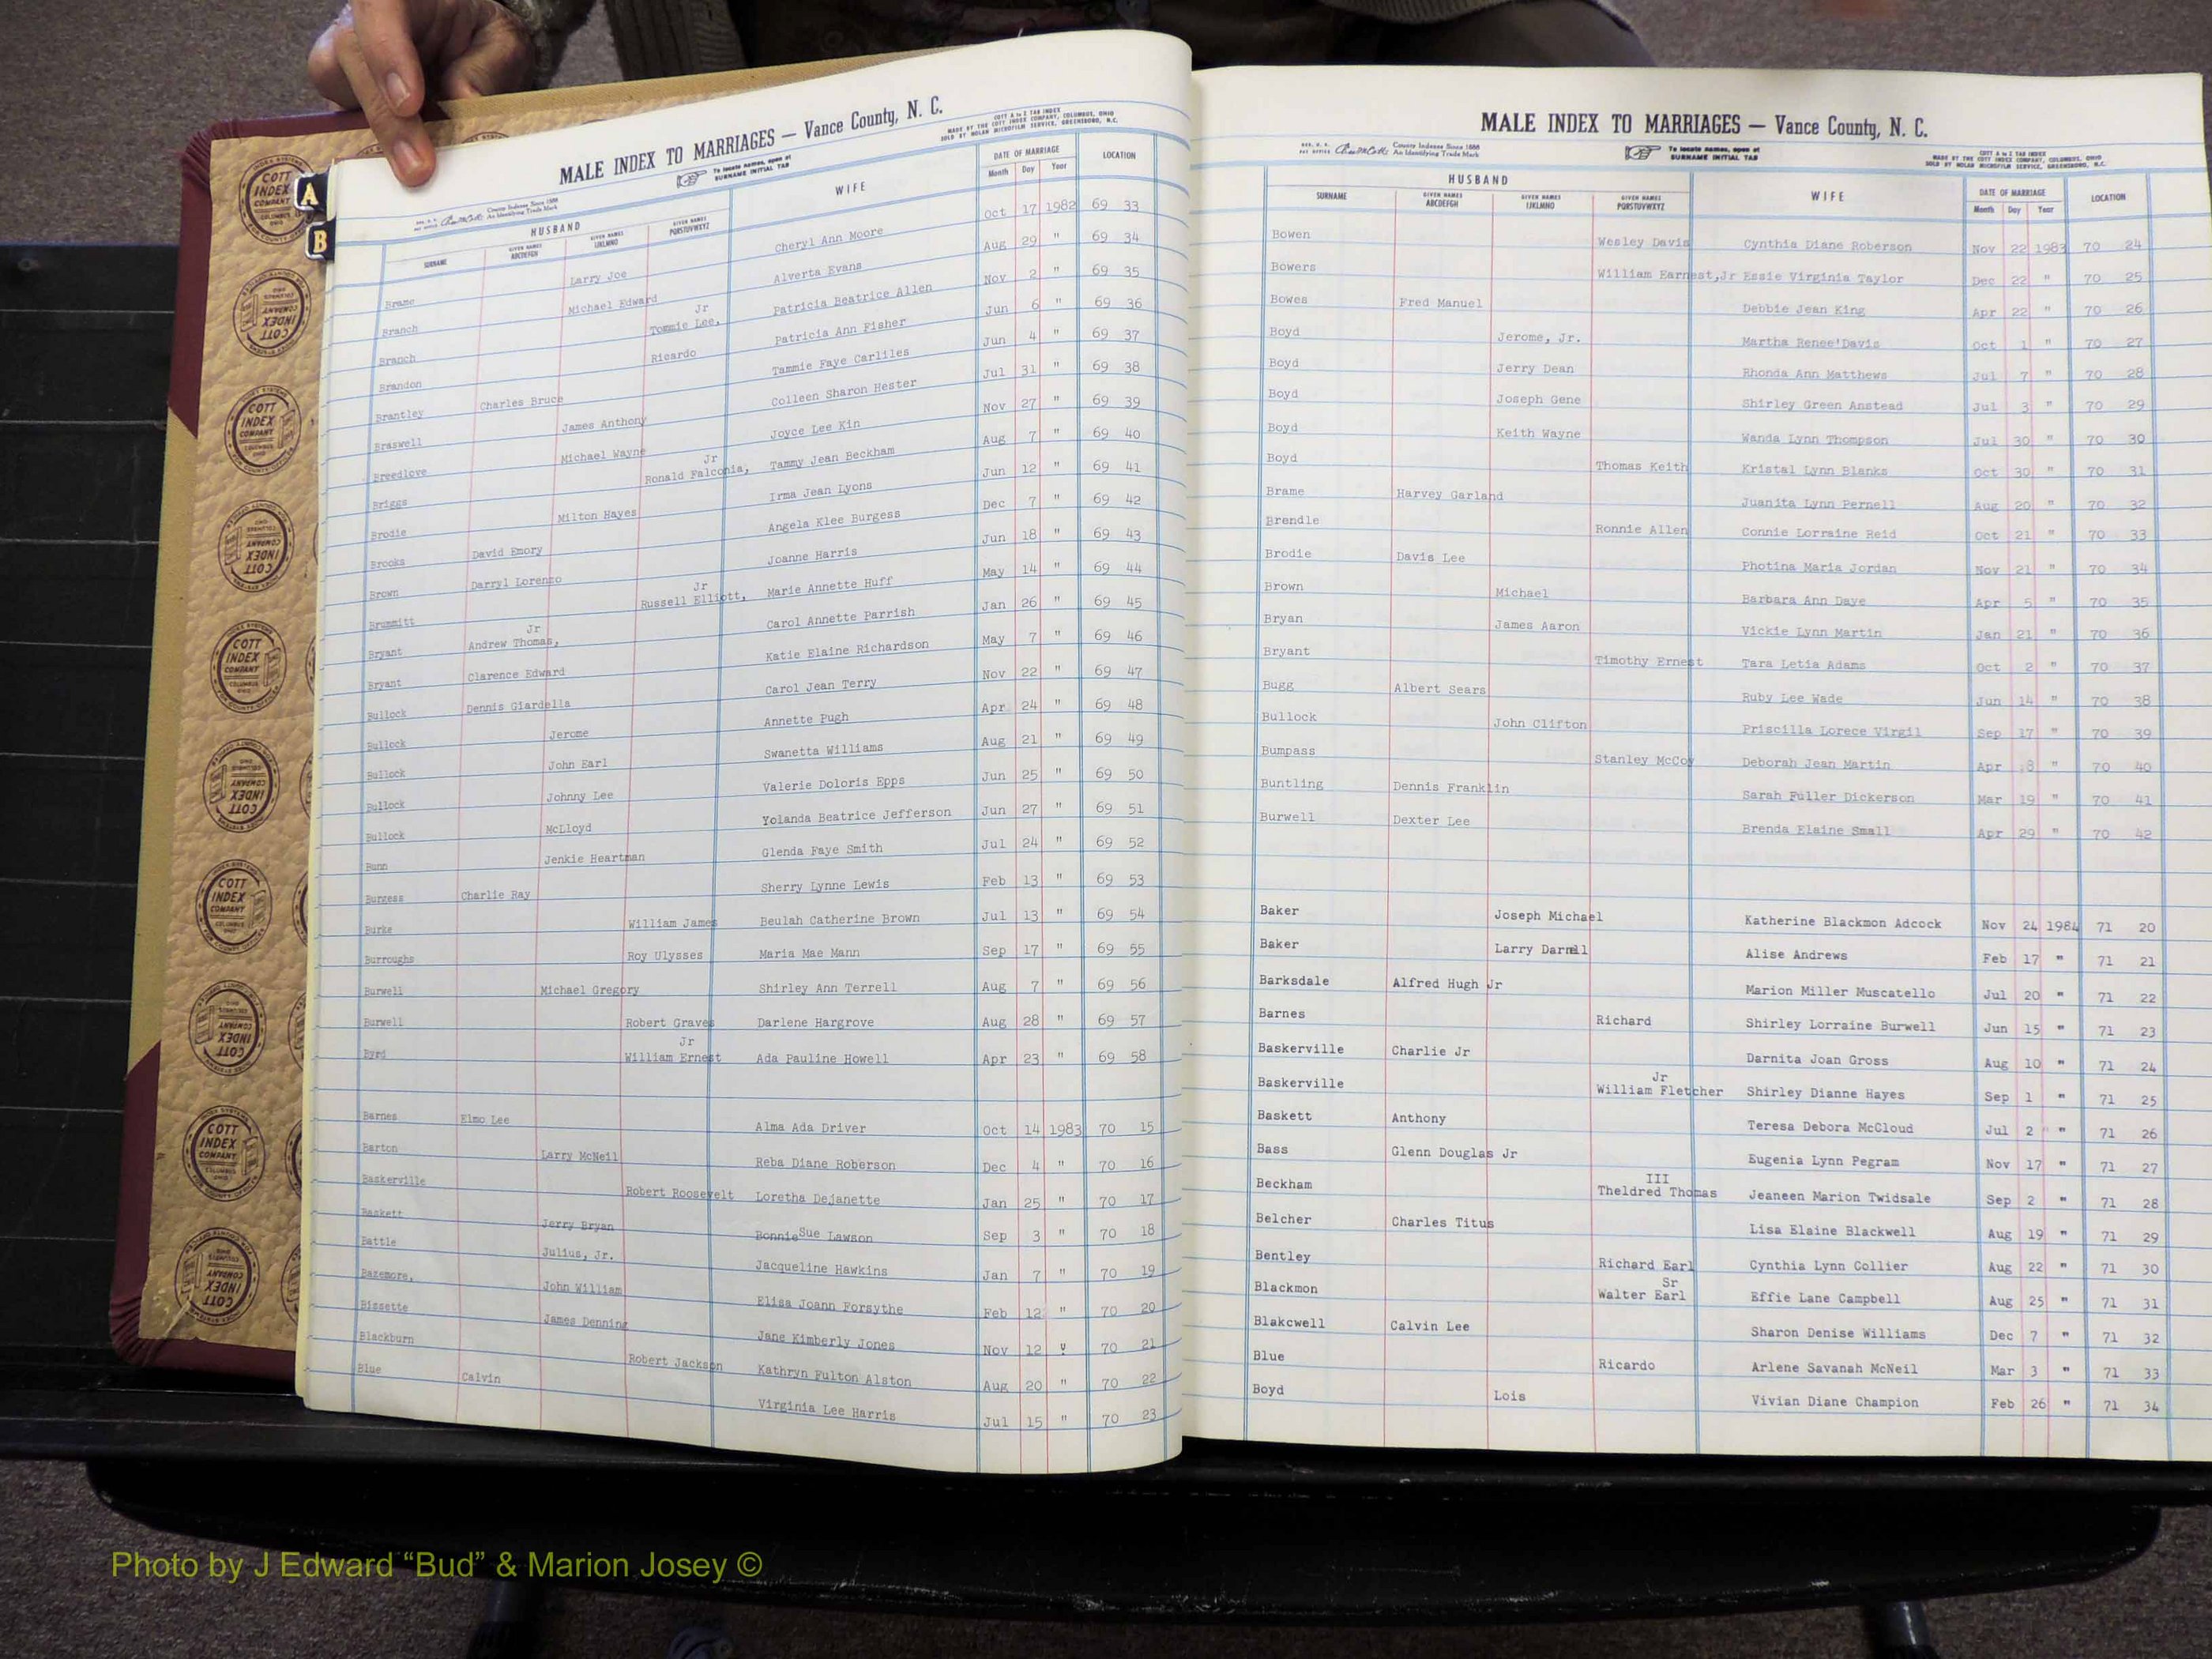 A
B
COTT INDEX COMPANY
MALE INDEX TO MARRIAGES — Vance County, N. C.
COTT A to Z TAB INDEX
MADE BY THE COTT INDEX COMPANY, COLUMBUS, OHIO
SOLD BY NOLAN MICROFILM SERVICE, GREENSBORO, N.C.
County Indexes Since 1888
An Identifying Trade Mark
To locate names, open at
SURNAME INITIAL TAB
HUSBAND WIFE DATE OF MARRIAGE LOCATION
SURNAME GIVEN NAMES ABCDEFGH GIVEN NAMES IJKLMNO GIVEN NAMES PQRSTUVWXYZ Month Day Year
Brame Larry Joe Cheryl Ann Moore Oct 17 1982 69 33
Branch Michael Edward Alverta Evans Aug 29 " 69 34
Branch Tommie Lee, Jr Patricia Beatrice Allen Nov 2 " 69 35
Brandon Ricardo Patricia Ann Fisher Jun 6 " 69 36
Brantley Charles Bruce Tammie Faye Carliles Jun 4 " 69 37
Braswell James Anthony Colleen Sharon Hester Jul 31 " 69 38
Breedlove Michael Wayne Joyce Lee Kin Nov 27 " 69 39
Briggs Ronald Falconia, Jr Tammy Jean Beckham Aug 7 " 69 40
Brodie Milton Hayes Irma Jean Lyons Jun 12 " 69 41
Brooks David Emory Angela Klee Burgess Dec 7 " 69 42
Brown Darryl Lorenzo Joanne Harris Jun 18 " 69 43
Brummitt Russell Elliott, Jr Marie Annette Huff May 14 " 69 44
Bryant Andrew Thomas, Jr Carol Annette Parrish Jan 26 " 69 45
Bryant Clarence Edward Katie Elaine Richardson May 7 " 69 46
Bullock Dennis Giardella Carol Jean Terry Nov 22 " 69 47
Bullock Jerome Annette Pugh Apr 24 " 69 48
Bullock John Earl Swanetta Williams Aug 21 " 69 49
Bullock Johnny Lee Valerie Doloris Epps Jun 25 " 69 50
Bullock McLloyd Yolanda Beatrice Jefferson Jun 27 " 69 51
Bunn Jenkie Heartman Glenda Faye Smith Jul 24 " 69 52
Burgess Charlie Ray Sherry Lynne Lewis Feb 13 " 69 53
Burke William James Beulah Catherine Brown Jul 13 " 69 54
Burroughs Roy Ulysses Maria Mae Mann Sep 17 " 69 55
Burwell Michael Gregory Shirley Ann Terrell Aug 7 " 69 56
Burwell Robert Graves Darlene Hargrove Aug 28 " 69 57
Byrd William Ernest Jr Ada Pauline Howell Apr 23 " 69 58
Barnes Elmo Lee Alma Ada Driver Oct 14 1983 70 15
Barton Larry McNeil Reba Diane Roberson Dec 4 " 70 16
Baskerville Robert Roosevelt Loretha Dejanette Jan 25 " 70 17
Baskett Jerry Bryan Bonnie Sue Lawson Sep 3 " 70 18
Battle Julius, Jr. Jacqueline Hawkins Jan 7 " 70 19
Bazemore, John William Elisa Joann Forsythe Feb 12 " 70 20
Bissette James Denning Jane Kimberly Jones Nov 12 " 70 21
Blackburn Robert Jackson Kathryn Fulton Alston Aug 20 " 70 22
Blue Calvin Virginia Lee Harris Jul 15 " 70 23
MALE INDEX TO MARRIAGES — Vance County, N. C.
County Indexes Since 1888
An Identifying Trade Mark
To locate names, open at
SURNAME INITIAL TAB
COTT A to Z TAB INDEX
MADE BY THE COTT INDEX COMPANY, COLUMBUS, OHIO
SOLD BY NOLAN MICROFILM SERVICE, GREENSBORO, N.C.
HUSBAND WIFE DATE OF MARRIAGE LOCATION
SURNAME GIVEN NAMES ABCDEFGH GIVEN NAMES IJKLMNO GIVEN NAMES PQRSTUVWXYZ Month Day Year
Bowen Wesley Davis Cynthia Diane Roberson Nov 22 1983 70 24
Bowers William Earnest,Jr Essie Virginia Taylor Dec 22 " 70 25
Bowes Fred Manuel Debbie Jean King Apr 22 " 70 26
Boyd Jerome, Jr. Martha Renee'Davis Oct 1 " 70 27
Boyd Jerry Dean Rhonda Ann Matthews Jul 7 " 70 28
Boyd Joseph Gene Shirley Green Anstead Jul 3 " 70 29
Boyd Keith Wayne Wanda Lynn Thompson Jul 30 " 70 30
Boyd Thomas Keith Kristal Lynn Blanks Oct 30 " 70 31
Brame Harvey Garland Juanita Lynn Pernell Aug 20 " 70 32
Brendle Ronnie Allen Connie Lorraine Reid Oct 21 " 70 33
Brodie Davis Lee Photina Maria Jordan Nov 21 " 70 34
Brown Michael Barbara Ann Daye Apr 5 " 70 35
Bryan James Aaron Vickie Lynn Martin Jan 21 " 70 36
Bryant Timothy Ernest Tara Letia Adams Oct 2 " 70 37
Bugg Albert Sears Ruby Lee Wade Jun 14 " 70 38
Bullock John Clifton Priscilla Lorece Virgil Sep 17 " 70 39
Bumpass Stanley McCoy Deborah Jean Martin Apr 8 " 70 40
Buntling Dennis Franklin Sarah Fuller Dickerson Mar 19 " 70 41
Burwell Dexter Lee Brenda Elaine Small Apr 29 " 70 42
Baker Joseph Michael Katherine Blackmon Adcock Nov 24 1984 71 20
Baker Larry Darnell Alise Andrews Feb 17 " 71 21
Barksdale Alfred Hugh Jr Marion Miller Muscatello Jul 20 " 71 22
Barnes Richard Shirley Lorraine Burwell Jun 15 " 71 23
Baskerville Charlie Jr Darnita Joan Gross Aug 10 " 71 24
Baskerville William Fletcher Jr Shirley Dianne Hayes Sep 1 " 71 25
Baskett Anthony Teresa Debora McCloud Jul 2 " 71 26
Bass Glenn Douglas Jr Eugenia Lynn Pegram Nov 17 " 71 27
Beckham Theldred Thomas III Jeaneen Marion Twidsale Sep 2 " 71 28
Belcher Charles Titus Lisa Elaine Blackwell Aug 19 " 71 29
Bentley Richard Earl Cynthia Lynn Collier Aug 22 " 71 30
Blackmon Walter Earl Sr Effie Lane Campbell Aug 25 " 71 31
Blakcwell Calvin Lee Sharon Denise Williams Dec 7 " 71 32
Blue Ricardo Arlene Savanah McNeil Mar 3 " 71 33
Boyd Lois Vivian Diane Champion Feb 26 " 71 34
Photo by J Edward “Bud” & Marion Josey ©